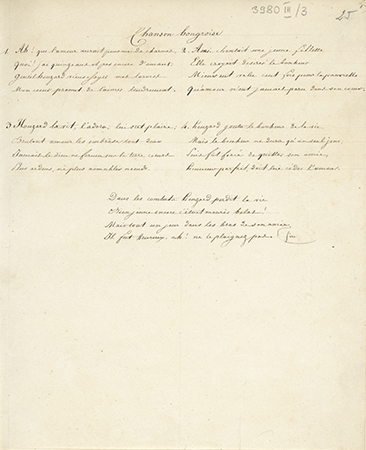 3980 III/3
25
Chanson hongroise
1. Ah! que l'amour aurait pour moi de charmes,
Quoi! j'ai quinze ans et pas encore d'amant;
Gentil hongard
Mon cœur promet de t'aimer tendrement.
2. Ainsi chantait une jeune fillette
Elle croyait désirer le bonheur
Mieux eut valu cent fois pour la pauvrette
Qu'amour n'eut jamais percé dans son cœur.
3. Hongard la vit, l'adora, lui sut plaire;
Brûlant amour les
Jamais le dieu ne forma sur la terre
Plus ardens, ni plus aimables nœuds.
4. Hongard goûta le bonheur de la vie
Mais le bonheur ne dura qu'un seul jour,
Sous fut forcé de quitter son amie,
Honneur parfait, doit faire céder l'amour.
Dans les combats Hongard perdit la vie
Bien jeune encore c'était mourir hélas!
Mais tout un jour dans les bras de son amie
Il fut heureux, ah! ne le plaignez pas.
fin